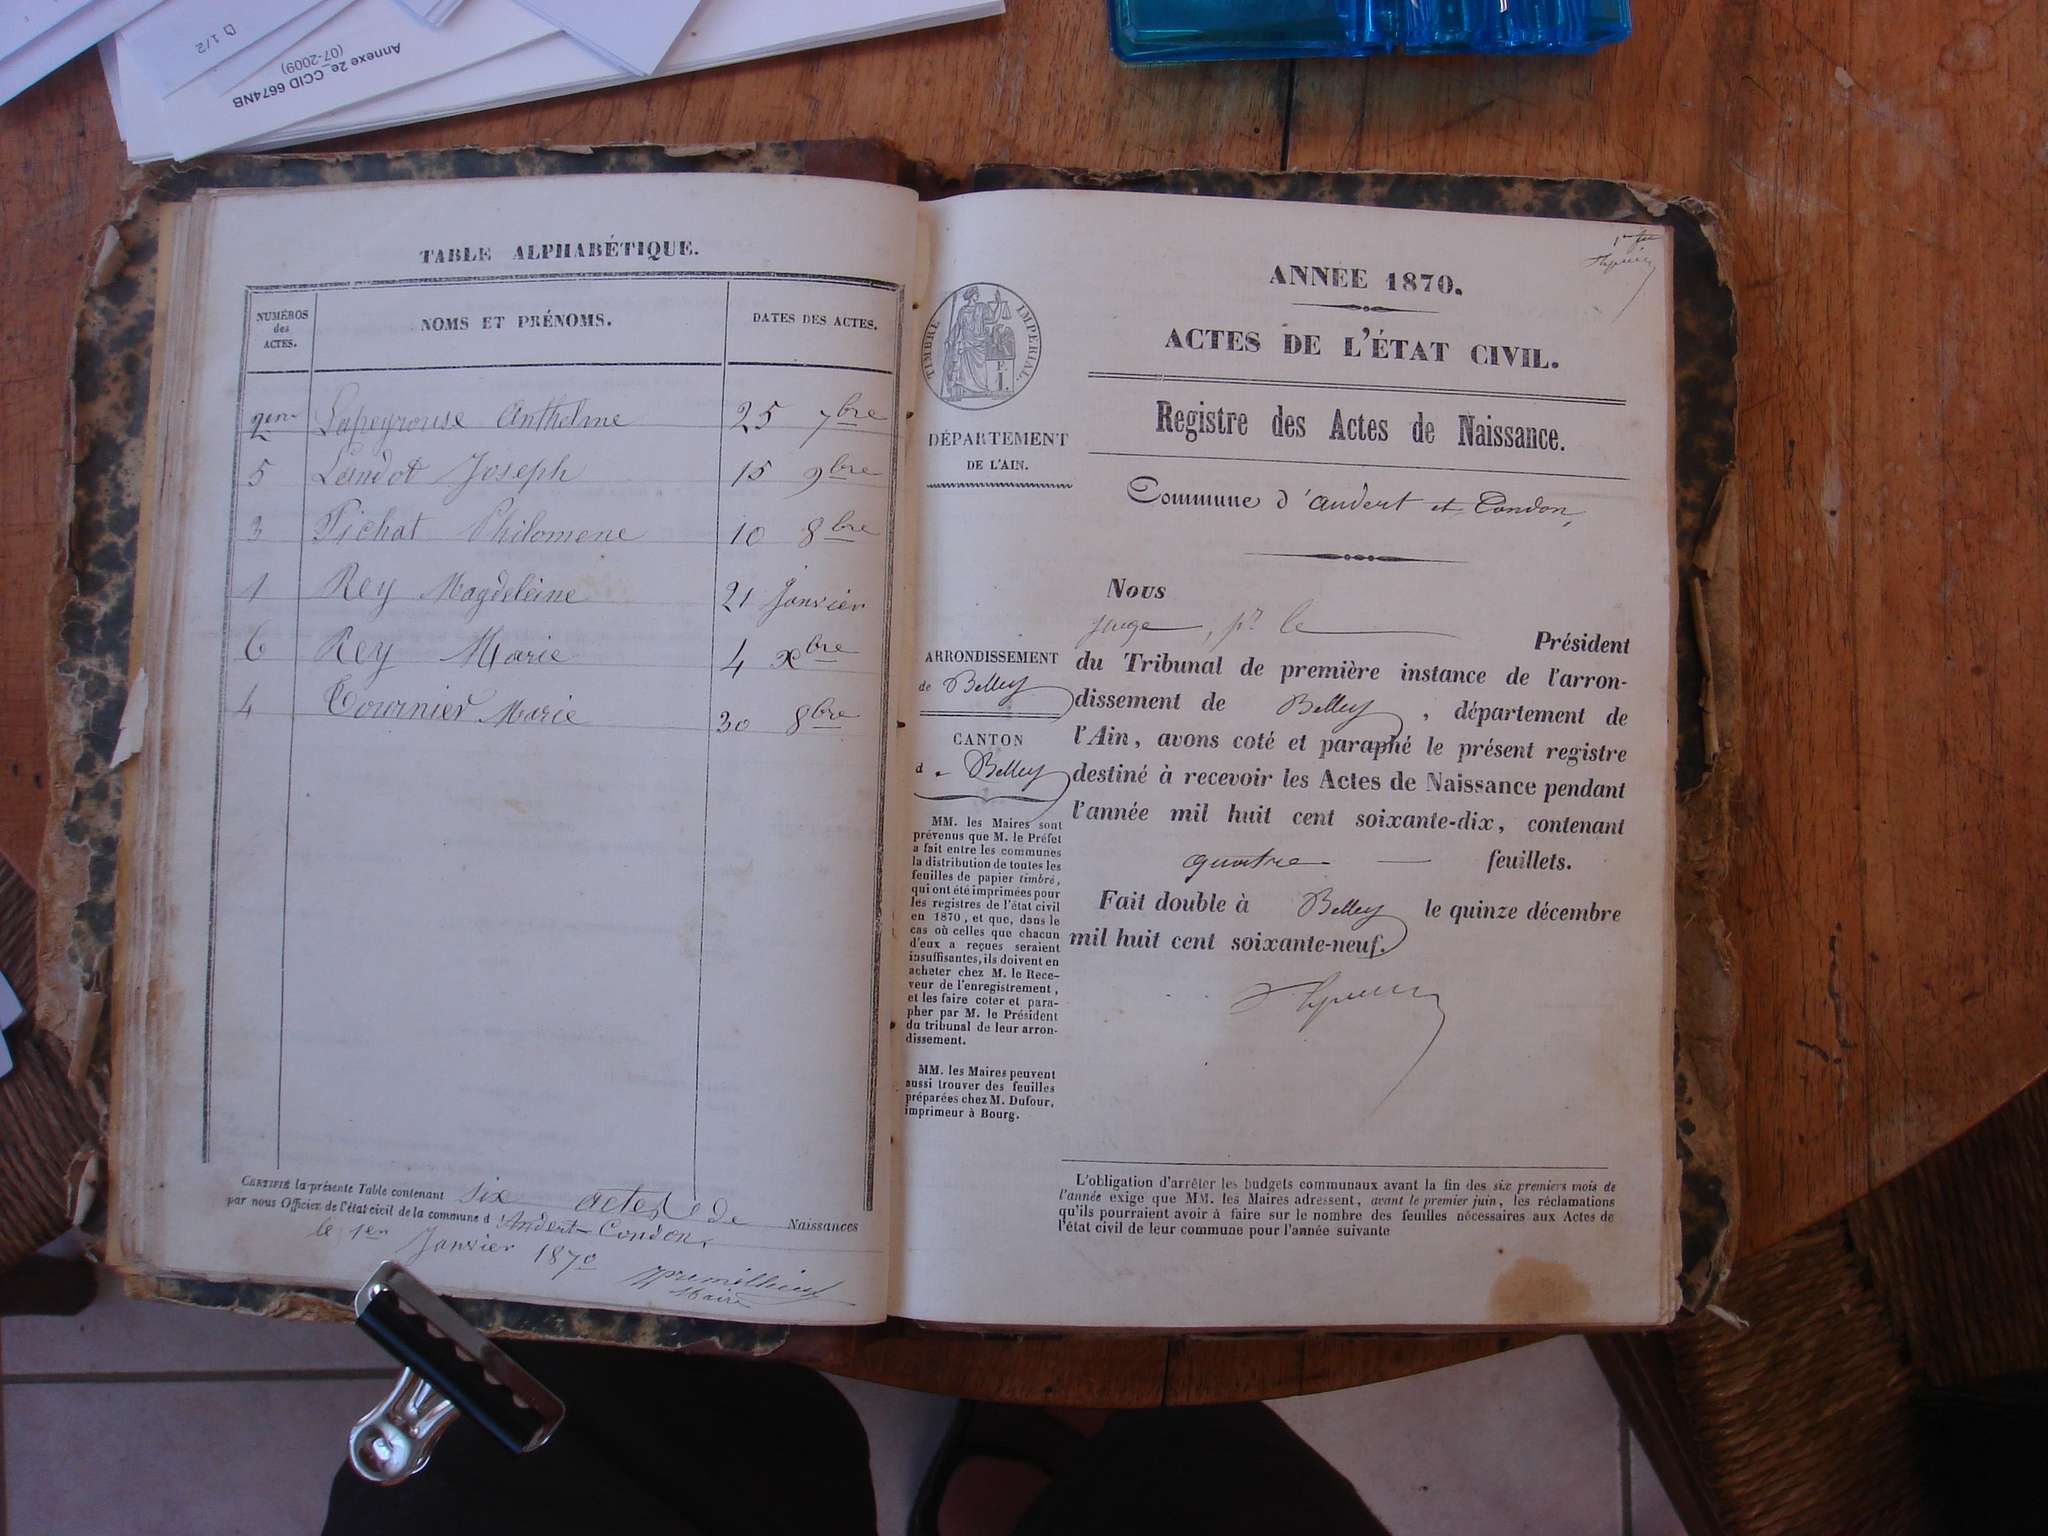 1/2
Annexe 2e CCID 6674NB
(07-2009)
TABLE ALPHABÉTIQUE.
NUMÉROS
des
ACTES.
NOMS ET PRÉNOMS.
DATES DES ACTES.
2eme Lapeyrouse Anthelme 25 7bre
5 Landot Joseph 15 9bre
3 Fichat Philomene 10 8bre
1 Rey Magdeleine 21 Janvier
6 Rey Marie 4 Xbre
4 Tournier Marie 30 8bre
CERTIFIÉ la présente Table contenant six actes de Naissances
par nous Officier de l'état civil de la commune d'Andert-Condon,
le 1er Janvier 1870
Maire
ANNÉE 1870.
ACTES DE L'ÉTAT CIVIL.
Registre des Actes de Naissance.
Commune d'andert et Condon,
TIMBRE IMPÉRIAL.
DÉPARTEMENT
DE L'AIN.
ARRONDISSEMENT
de Belley
CANTON
de Belley
MM. les Maires sont
prévenus que M. le Préfet
a fait entre les communes
la distribution de toutes les
feuilles de papier timbré,
qui ont été imprimées pour
les registres de l'état civil
en 1870, et que, dans le
cas où celles que chacun
d'eux a reçues seraient
insuffisantes, ils doivent en
acheter chez M. le Rece-
veur de l'enregistrement,
et les faire coter et para-
pher par M. le Président
du tribunal de leur arron-
dissement.
MM. les Maires peuvent
aussi trouver des feuilles
préparées chez M. Dufour,
imprimeur à Bourg.
Nous
juge, pr le Président
du Tribunal de première instance de l'arron-
dissement de Belley, département de
l'Ain, avons coté et paraphé le présent registre
destiné à recevoir les Actes de Naissance pendant
l'année mil huit cent soixante-dix, contenant
quatre feuillets.
Fait double à Belley le quinze décembre
mil huit cent soixante-neuf.
L'obligation d'arrêter les budgets communaux avant la fin des six premiers mois de
l'année exige que MM. les Maires adressent, avant le premier juin, les réclamations
qu'ils pourraient avoir à faire sur le nombre des feuilles nécessaires aux Actes de
l'état civil de leur commune pour l'année suivante